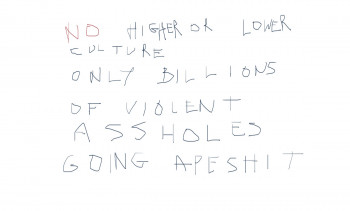 NO HIGHER OR LOWER
CULTURE
ONLY BILLIONS
OF VIOLENT
ASSHOLES
GOING APESHIT